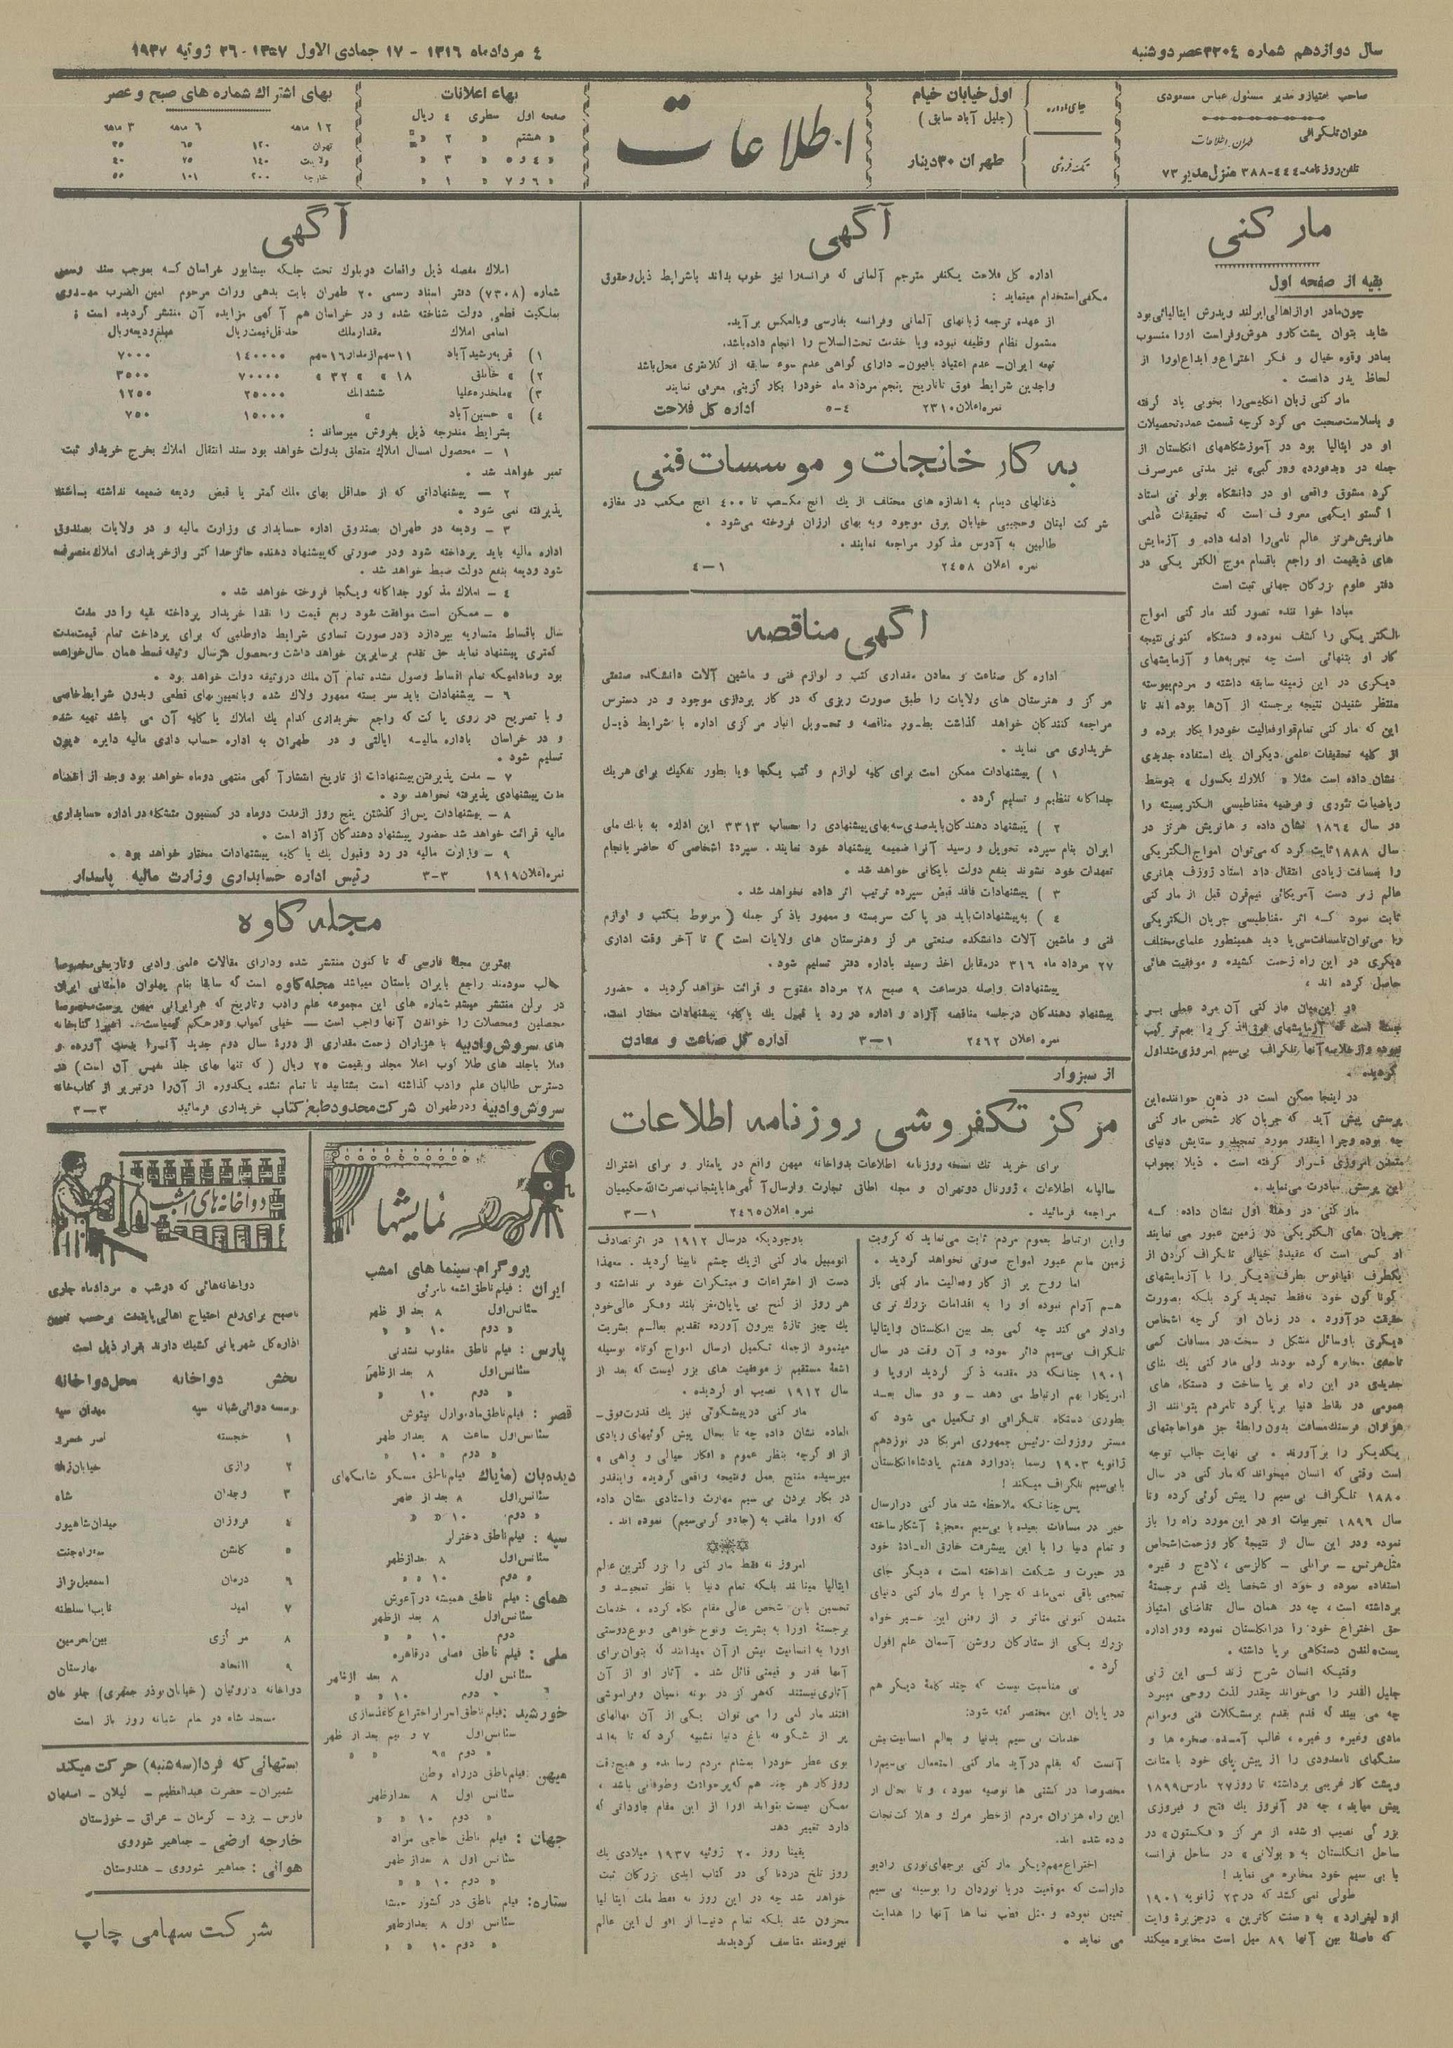 سال دوازدهم شماره ۳۲۰۴ عصر دوشنبه
۴ مرداد ماه ۱۳۱۶ - ۱۷ جمادی الاول ۱۳۵۷ - ۲۶ ژوئیه ۱۹۳۷
صاحب امتیاز و مدیر مسئول عباس مسعودی
عنوان تلگرافی
طهران اطلاعات
تلفن روزنامه ۴۴۴-۳۸۸ منزل مدیر ۷۳
جای اداره
اول خیابان خیام
(جلیل آباد سابق)
تک فروشی
طهران ۳۰ دینار
اطلاعات
بهاء اعلانات
صفحه اول سطری ۴ ریال
» هشتم » ۲ »
» ۴ و ۵ » ۳ »
» ۶ و ۷ » ۱ »
بهای اشتراك شماره های صبح و عصر
۱۲ ماهه ۶ ماهه ۳ ماهه
تهران ۱۲۰ ۶۵ ۳۵
ولایت ۱۴۰ ۷۵ ۴۰
خارجه ۲۰۰ ۱۰۱ ۵۵
مارکنی
بقیه از صفحه اول
چون مادر او از اهالی ایرلند و پدرش ایتالیائی بود
شاید بتوان پشت کار و هوش و فراست او را منسوب
بمادر و قوه خیال و فکر اختراع و ابداع او را از
لحاظ پدر دانست .
مارکنی زبان انگلیسی را بخوبی یاد گرفته
و باسلاست صحبت می کرد گرچه قسمت عمده تحصیلات
او در ایتالیا بود در آموزشگاههای انگلستان از
کرد مشوق واقعی او در دانشگاه بولونی استاد
هانریش هرتز عالم نامی را ادامه داده و آزمایش
های ذیقیمت او راجع باقسام موج الکتریکی در
دفتر علوم بزرگان جهانی ثبت است
مبادا خواننده تصور کند مارکنی امواج
الکتریکی را کشف نموده و دستگاه کنونی نتیجه
کار او بتنهائی است چه تجربه‌ها و آزمایشهای
دیگری در این زمینه سابقه داشته و مردم پیوسته
منتظر شنیدن نتیجه برجسته از آن‌ها بوده اند تا
این که مارکنی تمام قوا و فعالیت خود را بکار برده و
از کلیه تحقیقات علمی دیگران یك استفاده جدیدی
ریاضیات تئوری و فرضیه مغناطیسی الکتریسیته را
در سال ۱۸۶۴ نشان داده و هانریش هرتز در
سال ۱۸۸۸ ثابت کرد که می‌توان امواج الکتریکی
را بمسافت زیادی انتقال داد استاد ژوزف هانری
عالم زبر دست آمریکائی نیم قرن قبل از مارکنی
ثابت نمود که اثر مغناطیسی جریان الکتریکی
دیگری در این راه زحمت کشیده و موفقیت هائی
حاصل کرده اند ،
در اینجا ممکن است در ذهن خواننده این
پرسش پیش آید که جریان کار شخص مارکنی
چه بوده و چرا اینقدر مورد تمجید و ستایش دنیای
متمدن امروزی قرار گرفته است . ذیلا بجواب
این پرسش مبادرت می‌نماید .
مارکنی در وهلهٔ اول نشان داده که
جریان های الکتریکی در زمین عبور می نمایند
او کسی است که عقیدهٔ خیالی تلگراف کردن از
یکطرف اقیانوس بطرف دیگر را با آزمایشهای
گوناگون خود نه فقط تجدید کرد بلکه بصورت
حقیقت درآورد . در زمان او گرچه اشخاص
دیگری با وسائل مشکل و سخت در مسافات کمی
جدیدی در این راه برپا ساخت و دستگاه های
عمومی در نقاط دنیا برپا کرد تا مردم بتوانند از
هزاران فرسنگ مسافت بدون رابطهٔ جز هوا حاجتهای
یکدیگر را برآورند . بی نهایت جالب توجه
است وقتی که انسان میخواند که مارکنی در سال
۱۸۸۰ تلگراف بی سیم را پیش گوئی کرده و تا
سال ۱۸۹۶ تجربیات او در این مورد راه را باز
نموده و در این سال از نتیجهٔ کار و زحمت اشخاص
استفاده نموده و خود او شخصا یك قدم برجستهٔ
برداشته است ، چه در همان سال تقاضای امتیاز
حق اختراع خود را در انگلستان نموده و در اداره
پست لندن دستگاهی برپا داشته .
وقتیکه انسان شرح زندگی این زنی
جلیل القدر را می‌خواند چقدر لذت روحی میبرد
چه می بیند که قدم بقدم بر مشکلات فنی و موانع
مادی و غیره و غیره ، غالب آمده صخره ها و
سنگهای نامعدودی را از پیش پای خود با متانت
و پشت کار غریبی برداشته تا روز ۲۷ مارس ۱۸۹۹
پیش میاید ، چه در آنروز یك فتح و فیروزی
بزرگی نصیب او شده از مرکز « فکستون » در
ساحل انگلستان به « بولانی » در ساحل فرانسه
با بی سیم خود مخابره می نماید !
طولی نمی کشد که در ۲۳ ژانویه ۱۹۰۱
از « لیفرارد » به « سنت کاترین » در جزیرهٔ وایت
که فاصلهٔ بین آنها ۸۹ میل است مخابره میکند
آگهی
اداره کل فلاحت یکنفر مترجم آلمانی که فرانسه را نیز خوب بداند با شرایط ذیل و حقوق
مکفی استخدام مینماید :
از عهده ترجمه زبانهای آلمانی و فرانسه بفارسی و بالعکس برآید .
مشمول نظام وظیفه نبوده و یا خدمت تحت السلاح را انجام داده باشد.
تبعه ایران - عدم اعتیاد بافیون - دارای گواهی عدم سوء سابقه از کلانتری محل باشد
واجدین شرایط فوق تا تاریخ پنجم مرداد ماه خود را بکار گزینی معرفی نمایند
نمره اعلان ۲۳۱۰ ۴-۵ اداره کل فلاحت
به کارخانجات و موسسات فنی
ذغالهای دینام به اندازه های مختلف از یك انج مکعب تا ۴۰۰ انج مکعب در مغازه
شرکت لبنان و حبیبی خیابان برق موجود و به بهای ارزان فروخته می‌شود .
طالبین به آدرس مذکور مراجعه نمایند .
نمره اعلان ۲۴۵۸ ۱-۴
آگهی مناقصه
اداره کل صناعت و معادن مقداری کتب و لوازم فنی و ماشین آلات دانشکده صنعتی
مرکز و هنرستان های ولایات را طبق صورت ریزی که در کار پردازی موجود و در دسترس
مراجعه کنندگان خواهد گذاشت بطور مناقصه و تحویل انبار مرکزی اداره با شرایط ذیل
خریداری می نماید .
۱ ) پیشنهادات ممکن است برای کلیه لوازم و کتب یکجا و یا بطور تفکیك برای هر یك
جداگانه تنظیم و تسلیم گردد .
۲ ) پیشنهاد دهندگان باید صدی سه بهای پیشنهادی را بحساب ۳۳۱۳ این اداره به بانك ملی
ایران بنام سپرده تحویل و رسید آنرا ضمیمه پیشنهاد خود نمایند . سپردهٔ اشخاصی که حاضر بانجام
تعهدات خود نشوند بنفع دولت بایگانی خواهد شد .
۳ ) پیشنهادات فاقد قبض سپرده ترتیب اثر داده نخواهد شد .
۴ ) به پیشنهادات باید در پاکت سربسته و ممهور با ذکر جمله ( مربوط بکتب و لوازم
فنی و ماشین آلات دانشکده صنعتی مرکز و هنرستان های ولایات است ) تا آخر وقت اداری
۲۷ مرداد ماه ۳۱۶ در مقابل اخذ رسید باداره دفتر تسلیم شود .
پیشنهادات واصله در ساعت ۹ صبح ۲۸ مرداد مفتوح و قرائت خواهد گردید . حضور
پیشنهاد دهندگان در جلسه مناقصه آزاد و اداره در رد یا قبول یك یا کلیه پیشنهادات مختار است.
نمره اعلان ۲۴۶۲ ۱-۳ اداره کل صناعت و معادن
از سبزوار
مرکز تکفروشی روزنامه اطلاعات
برای خرید تك نسخه روزنامه اطلاعات بدواخانه میهن واقع در پامنار و برای اشتراك
سالیانه اطلاعات ، ژورنال دو تهران و مجله اطاق تجارت و ارسال آگهی‌ها باینجانب نصرت الله حکیمیان
مراجعه فرمائید . نمره اعلان ۲۴۶۵ ۱-۳
و این ارتباط بعموم مردم ثابت می‌نماید که کرویت
زمین مانع عبور امواج صوتی نخواهد گردید .
اما روح پر از کار و فعالیت مارکنی باز
هم آرام نبوده او را به اقدامات بزرگ‌تری
وادار می کند چه کمی بعد بین انگلستان و ایتالیا
تلگراف بی‌سیم دائر نموده و آن وقت در سال
۱۹۰۱ چنانکه در مقدمه ذکر گردید اروپا و
امریکا را بهم ارتباط می دهد - و دو سال بعد
بطوری دستگاه تلگرافی او تکمیل می شود که
مستر روزولت رئیس جمهوری امریکا در نوزدهم
ژانویه ۱۹۰۳ رسما با ادوارد هفتم پادشاه انگلستان
با بی سیم تلگراف میکند !
پس چنانکه ملاحظه شد مارکنی در ارسال
خبر در مسافات بعیده با بی‌سیم معجزهٔ آشکار ساخته
و تمام دنیا را با این پیشرفت خارق العادهٔ خود
در حیرت و شگفت انداخته است ، دیگر جای
تعجبی باقی نمی‌ماند که چرا با مرك مارکنی دنیای
متمدن کنونی متاثر و از رفتن این خیر خواه
بزرك یکی از ستارگان روشن آسمان علم افول
کرد .
بی مناسبت نیست که چند کلمهٔ دیگر هم
در پایان این مختصر گفته شود :
خدمات بی سیم بدنیا و بعالم انسانیت بیش
از آنست که بقلم درآید مارکنی استعمال بی‌سیم را
مخصوصا در کشتی ها توصیه نمود ، و تا بحال از
این راه هزاران مردم از خطر مرك و هلاکت نجات
داده شده اند .
اختراع مهم دیگر مارکنی برجهای نوری رادیو
دار است که موقعیت دریا نوردان را بوسیله بی سیم
تعیین نموده و مثل قطب نما ها آنها را هدایت
می نماید .
باوجودیکه در سال ۱۹۱۲ در اثر تصادف
اتومبیل مارکنی از یك چشم نابینا گردید . معهذا
دست از اختراعات و مبتکرات خود بر نداشته و
هر روز از گنج بی پایان مغز بلند و فکر عالی خود
یك چیز تازهٔ بیرون آورده تقدیم بعالم بشریت
مینمود از جمله تکمیل ارسال امواج کوتاه بوسیله
اشعهٔ مستقیم از موفقیت های بزرگی است که بعد از
سال ۱۹۱۲ نصیب او گردیده .
مارکنی در پیشگوئی نیز یك قدرت فوق-
العاده نشان داده چه تا بحال پیش گوئیهای زیادی
از او گرچه بنظر عموم « افکار خیالی و واهی »
میرسیده منتج بعمل و نتیجه واقعی گردیده و اینقدر
در بکار بردن بی سیم مهارت و استادی نشان داده
که او را ملقب به ( جادوگر بی‌سیم ) نموده اند .
امروز نه فقط مارکنی را بزرگترین عالم
ایتالیا میدانند بلکه تمام دنیا با نظر تمجید و
تحسین باین شخص عالی مقام نگاه کرده ، خدمات
برجستهٔ او را به بشریت و نوع خواهی و نوع دوستی
او را به انسانیت بیش از آن میدانند که بتوان برای
آنها قدر و قیمتی قائل شد . آثار او از آن
آثاری نیستند که هرگز در بوته نسیان و فراموشی
افتند مارکنی را می توان یکی از آن نهالهای
پر از شکوفه باغ دنیا تشبیه کرد که تا به ابد
بوی عطر خود را بمشام مردم رسانده و هیچوقت
روزگار هر چند هم که پر حوادث و طوفانی باشد ،
ممکن نیست بتواند او را از این مقام جاودانی که
دارد تغییر دهد
یقینا روز ۲۰ ژوئیه ۱۹۳۷ میلادی یك
روز تلخ دردناکی در کتاب ابدی بزرگان ثبت
خواهد شد چه در این روز نه فقط ملت ایتالیا
محزون شد بلکه تمام دنیا از افول این عالم
نیرومند متاسف گردیدند
آگهی
املاك مفصله ذیل واقعات در بلوك تحت جلگه نیشابور خراسان که بموجب سند رسمی
شماره (۷۳۰۸) دفتر اسناد رسمی ۲۰ طهران بابت بدهی وراث مرحوم امین الضرب مهدوی
بملکیت قطعی دولت شناخته شده و در خراسان هم آگهی مزایده آن منتشر گردیده است :
اسامی املاك مقدار ملك حداقل قیمت ریال مبلغ ودیعه ریال
۱) قریه رشید آباد ۱۱ سهم از مدار ۱۶ سهم ۱۴۰۰۰۰ ۷۰۰۰
۲) » خانلق ۱۸ » » ۳۲ » ۷۰۰۰۰ ۳۵۰۰
۳) » ملخدره علیا ششدانك ۲۵۰۰۰ ۱۲۵۰
۴) » حسین آباد » ۱۵۰۰۰ ۷۵۰
بشرایط مندرجه ذیل بفروش میرساند :
۱ - محصول امسال املاك متعلق بدولت خواهد بود سند انتقال املاك بخرج خریدار ثبت
تمبر خواهد شد .
۲ - پیشنهاداتی که از حداقل بهای ملك کمتر یا قبض ودیعه ضمیمه نداشته باشند
پذیرفته نمی شود .
۳ - ودیعه در طهران بصندوق اداره حسابداری وزارت مالیه و در ولایات بصندوق
اداره مالیه باید پرداخته شود و در صورتی که پیشنهاد دهنده حائز حداکثر و از خریداری املاك منصرف
شود ودیعه بنفع دولت ضبط خواهد شد .
۴ - املاك مذکور جداگانه و یکجا فروخته خواهد شد .
۵ - ممکن است موافقت شود ربع قیمت را نقدا خریدار پرداخته بقیه را در مدت
سال باقساط متساویه بپردازد و در صورت تساوی شرایط داوطلبی که برای پرداخت تمام قیمت مدت
کمتری پیشنهاد نماید حق تقدم بر سایرین خواهد داشت و محصول هر سال وثیقه قسط همان سال خواهد
بود و مادامیکه تمام اقساط وصول نشده تمام آن ملك در وثیقه دولت خواهد بود .
۶ - پیشنهادات باید سر بسته ممهور ولاك شده و با تعیین بهای قطعی و بدون شرایط خاصی
و با تصریح در روی پاکت که راجع بخریداری کدام یك املاك یا کلیه آن می باشد تهیه شده
و در خراسان باداره مالیه ایالتی و در طهران به اداره حسابداری مالیه دایره دیون
تسلیم شود .
۷ - مدت پذیرفتن پیشنهادات از تاریخ انتشار آگهی منتهی دو ماه خواهد بود و بعد از انقضاء
مدت پیشنهادی پذیرفته نخواهد بود .
۸ - پیشنهادات پس از گذشتن پنج روز از مدت دو ماه در کمسیون متشکله در اداره حسابداری
مالیه قرائت خواهد شد حضور پیشنهاد دهندگان آزاد است .
۹ - وزارت مالیه در رد و قبول یك یا کلیه پیشنهادات مختار خواهد بود .
نمره اعلان ۱۹۱۹ ۳-۳ رئیس اداره حسابداری وزارت مالیه پاسدار
مجله کاوه
بهترین مجلهٔ فارسی که تا کنون منتشر شده و دارای مقالات علمی و ادبی و تاریخی مخصوصا
جالب سودمند راجع بایران باستان میباشد مجله کاوه است که سابقا بنام پهلوان داستانی ایران
در برلن منتشر میشد شماره های این مجموعه علم و ادب و تاریخ که هر ایرانی میهن پرست مخصوصا
محصلین و محصلات را خواندن آنها واجب است - خیلی کمیاب و در حکم کیمیاست . اخیرا کتابخانه
های سروش و ادبیه با هزاران زحمت مقداری از دورهٔ سال دوم جدید آنرا بدست آورده و
دسترس طالبان علم و ادب گذاشته است بشتابید تا تمام نشده یکدوره از آن را در تبریز از کتابخانه
سروش و ادبیه و در طهران شرکت محدود طبع کتاب خریداری فرمائید ۳-۳
نمایشها
پروگرام سینما های امشب
ایران : فیلم ناطق اشعه نامرئی
سئانس اول ۸ بعد از ظهر
» دوم ۱۰ » »
پارس : فیلم ناطق مغلوب نشدنی
سئانس اول ۸ بعد از ظهر
» دوم ۱۰ »
سئانس اول ساعت ۸ بعد از ظهر
» دوم » ۱۰ »
سئانس اول ۸ بعد از ظهر
» دوم ۱۰ » »
سپه : فیلم ناطق دختر لر
سئانس اول ۸ بعد از ظهر
» دوم ۱۰ » »
همای : فیلم ناطق همیشه در آغوش
سئانس اول ۸ بعد از ظهر
دوم ۱۰ » »
ملی : فیلم ناطق فصلی در قاهره
سئانس اول ۸ بعد از ظهر
» دوم ۱۰ » »
خورشید : فیلم ناطق اسرار اختراع کاغذسازی
سئانس اول ۷ و نیم بعد از ظهر
میهن : فیلم ناطق در راه وطن
سئانس اول ۸ بعد از ظهر
» دوم ۱۰ » »
جهان : فیلم ناطق حاجی مراد
سئانس اول ۸ بعد از ظهر
» دوم ۱۰ » »
سئانس اول ۸ بعد از ظهر
» دوم ۱۰ » »
دواخانه های امشب
دواخانه هائی که در شب ۵ مرداد ماه جاری
تا صبح برای رفع احتیاج اهالی پایتخت بر حسب تعیین
اداره کل شهربانی کشیك دارند بقرار ذیل است
بخش دواخانه محل دواخانه
موسسه دوائی شبانه سپه میدان سپه
۱ خجسته ناصر خسرو
۲ رازی خیابان ژاله
۳ وجدان شاه
۴ فروزان میدان شاهپور
۵ کاشن سه راه جنت
۶ درمان اسمعیل بزاز
۷ امید نایب السلطنه
۸ مرکزی بین الحرمین
۹ اتحاد بهارستان
مسجد شاه در تمام شبانه روز باز است
پستهائی که فردا (سه شنبه) حرکت میکند
شمیران - حضرت عبدالعظیم - گیلان - اصفهان
فارس - یزد - کرمان - عراق - خوزستان
خارجه ارضی - جماهیر شوروی
هوائی : جماهیر شوروی - هندوستان
شرکت سهامی چاپ